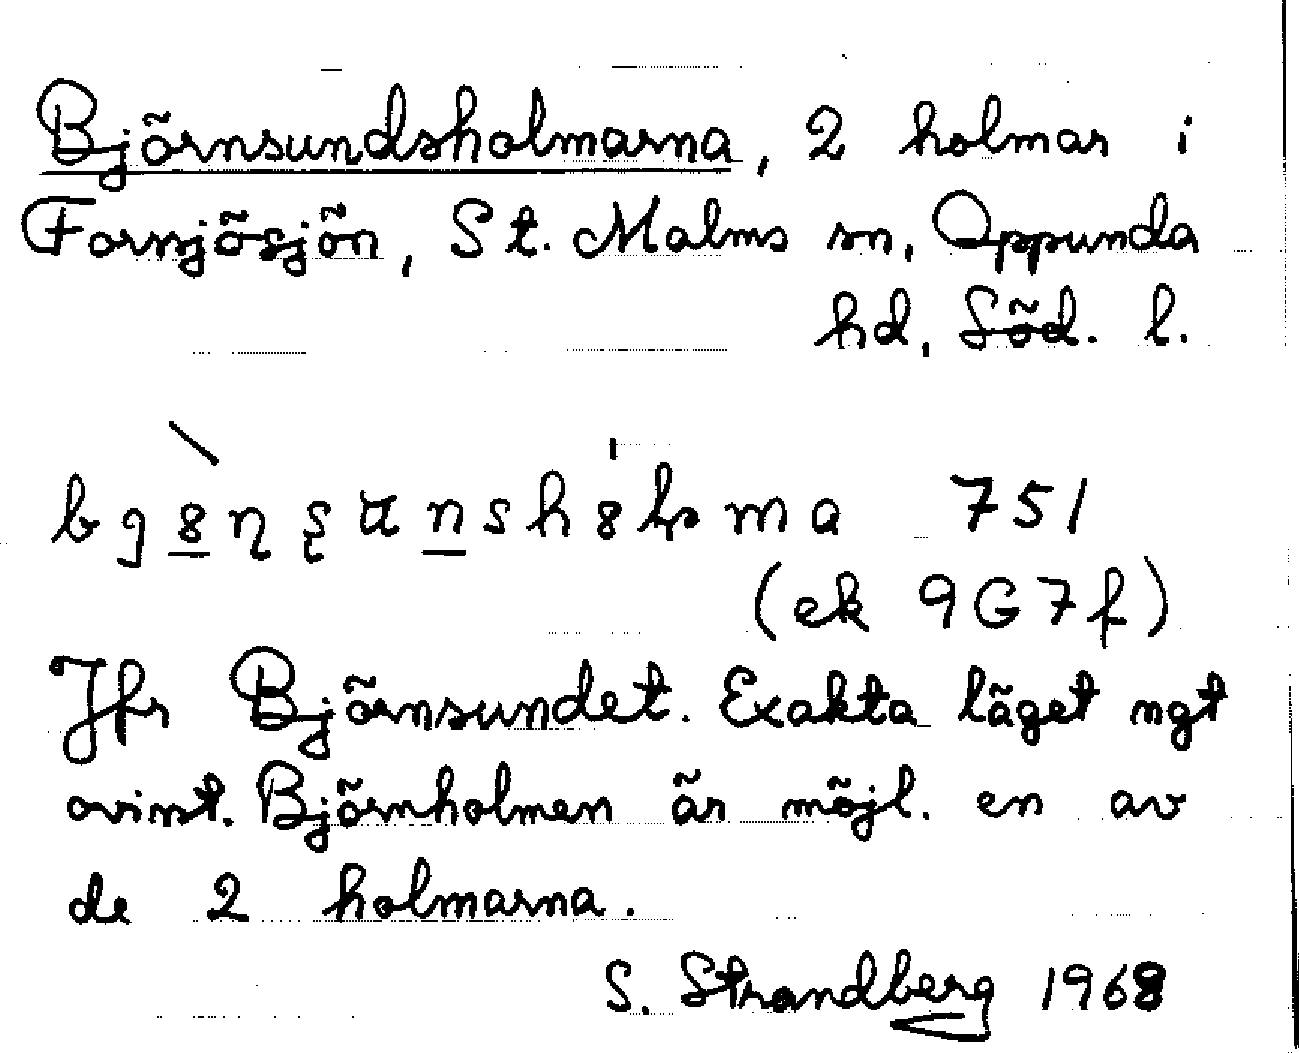 Björnsundsholmarna, 2 holmar i
Fornsjösjön, St. Malms sn, Oppunda
hd, Söd. l.
751
(ek 9G7f)
Jfr Björnsundet. Exakta läget ngt
ovisst. Björnholmen är möjl. en av
de 2 holmarna.
S. Strandberg 1968